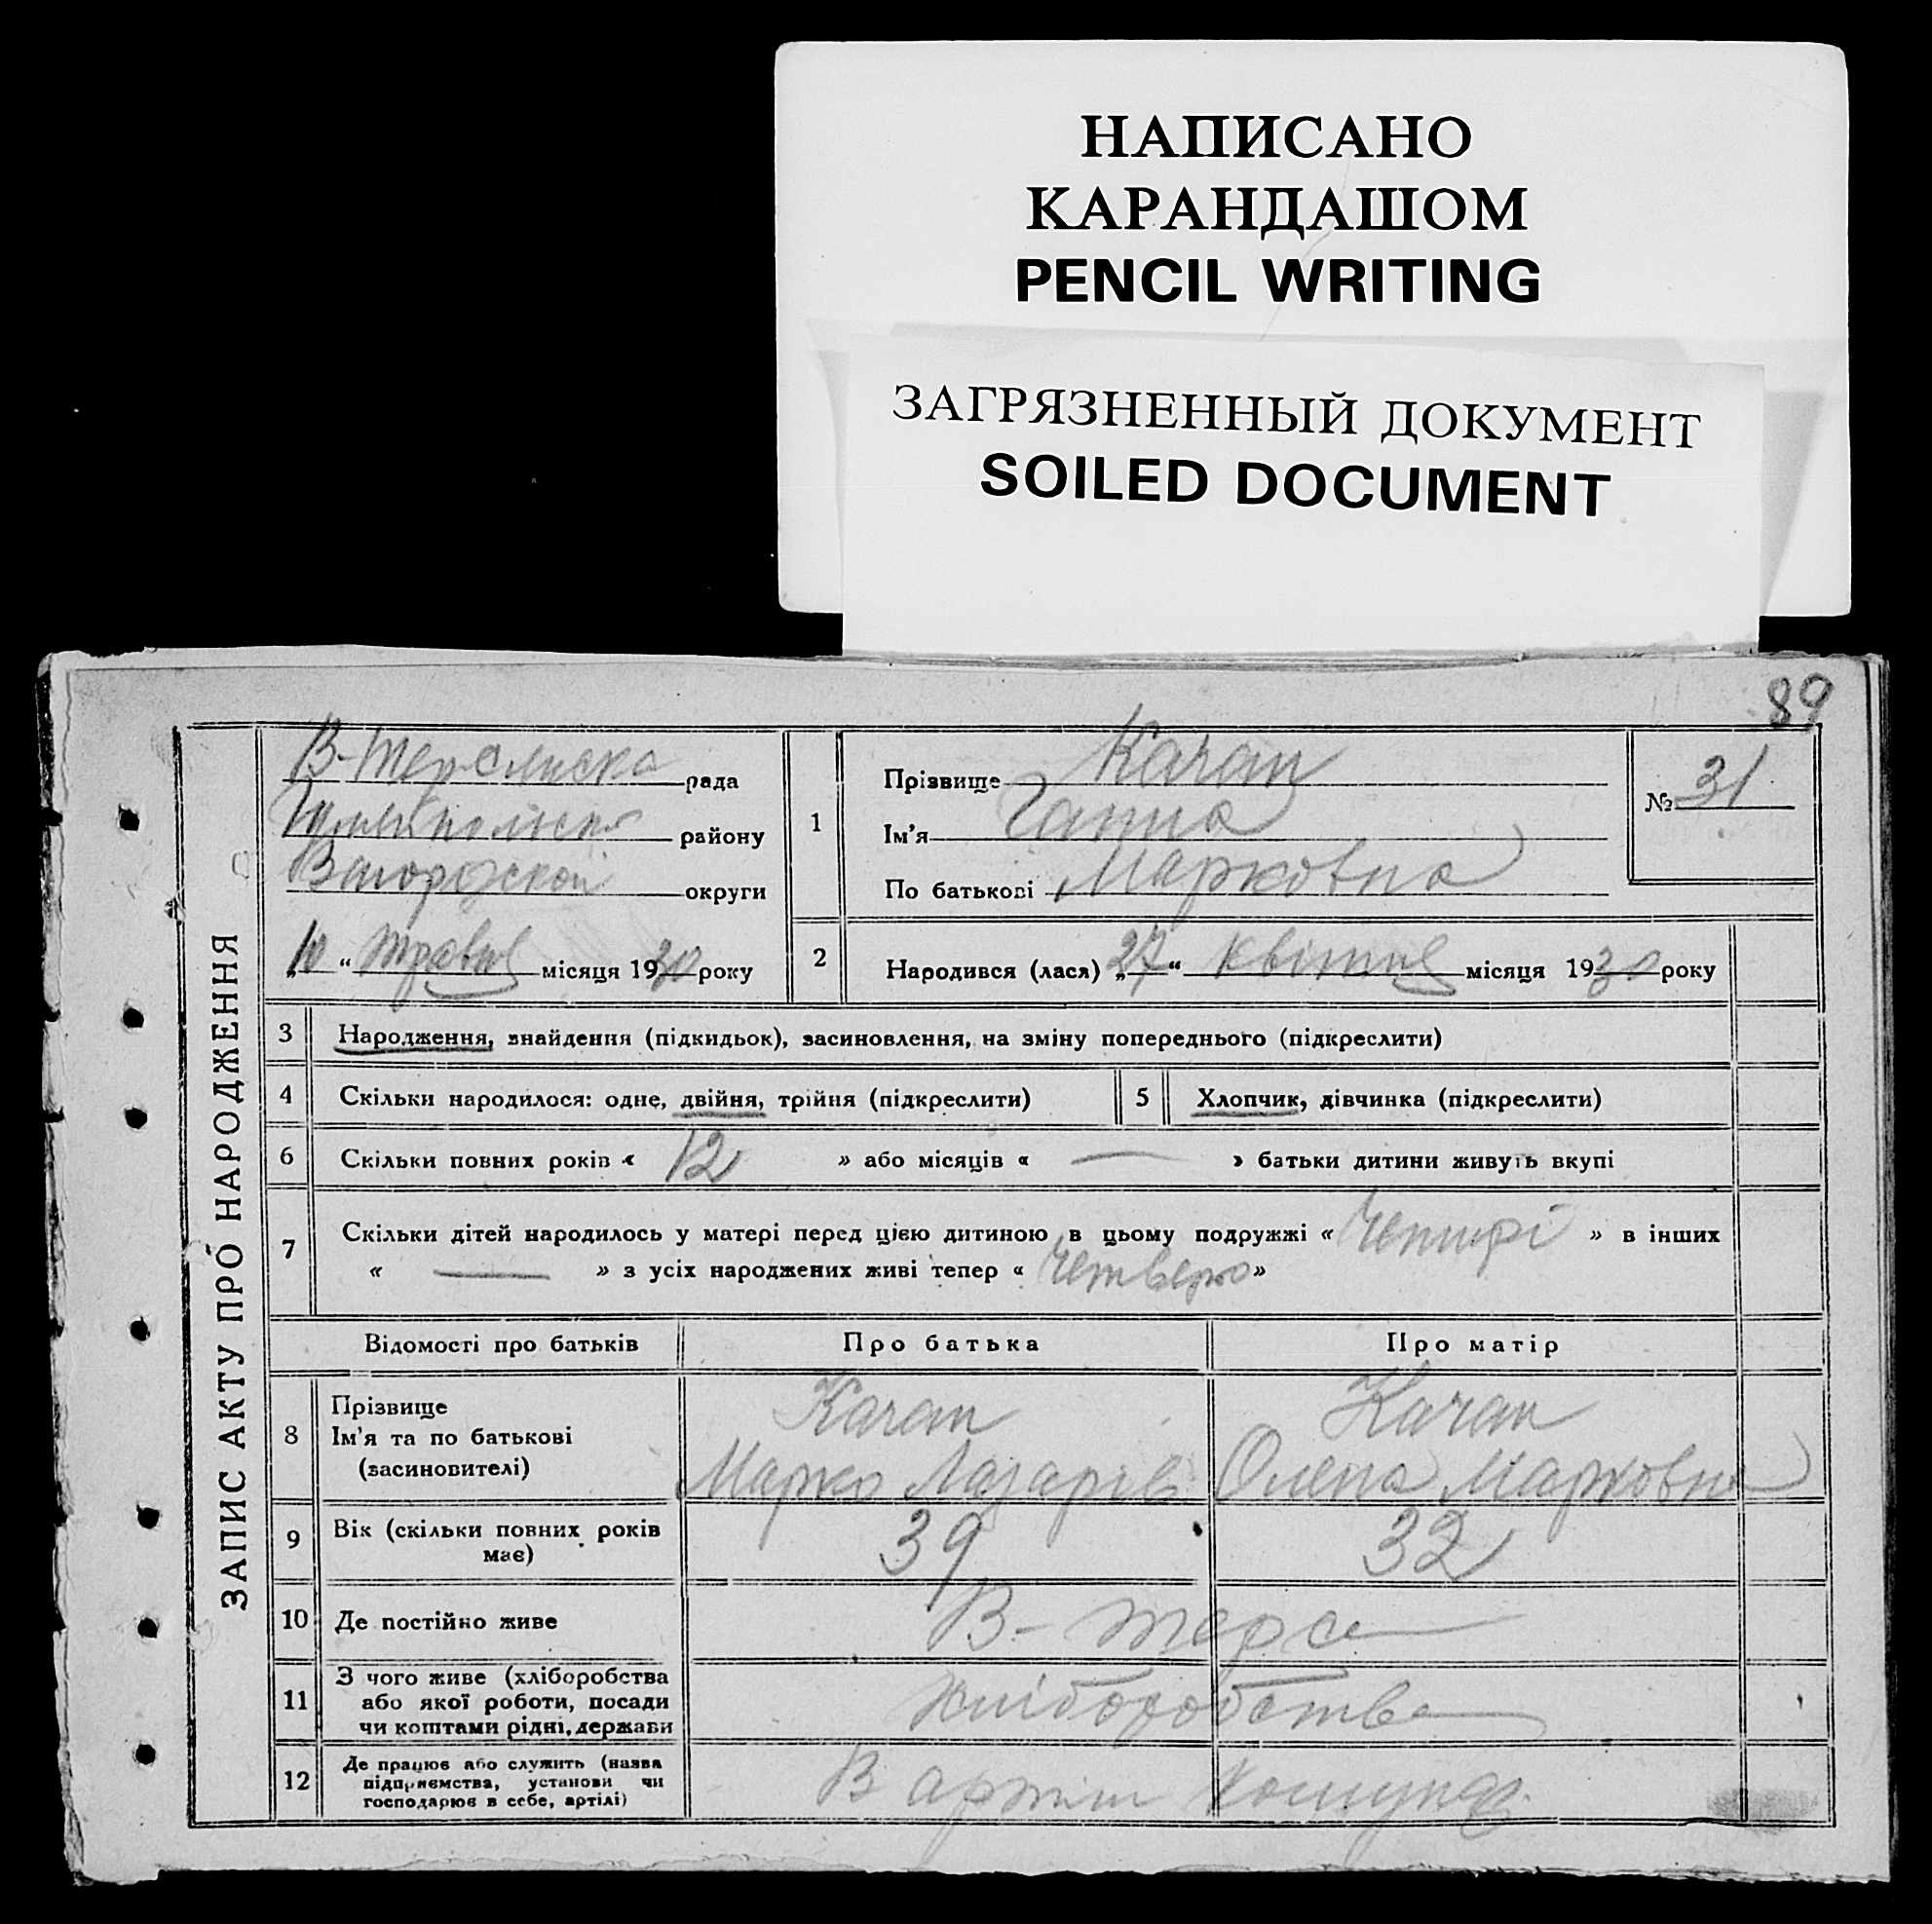 НАПИСАНО
КАРАНДАШОМ
PENCIL WRITING
ЗАГРЯЗНЕННЫЙ ДОКУМЕНТ
SOILED DOCUMENT
89
ЗАПИС АКТУ ПРО НАРОДЖЕННЯ
рада
району
округи
„10“ Травня місяця 1930 року
1
Прізвище Качан
Ім'я Ганна
По батькові Марковна
№ 31
2
Народився (лася) „27“ квітня місяця 1930 року
3 Народження, знайдення (підкидьок), засиновлення, на зміну попереднього (підкреслити)
4 Скільки народилося: одне, двійня, трійня (підкреслити)
5 Хлопчик, дівчинка (підкреслити)
6 Скільки повних років « 12 » або місяців « — » батьки дитини живуть вкупі
7 Скільки дітей народилось у матері перед цією дитиною в цьому подружжі « Чотирі » в інших
« — » з усіх народжених живі тепер « Четверо »
Відомості про батьків Про батька Про матір
8 Прізвище
Ім'я та по батькові
(засиновителі)
Качан
Марко Лазарів
Качан
Олена Марковна
9 Вік (скільки повних років
має)
39 32
10 Де постійно живе В-Терса
11 З чого живе (хліборобства
або якої роботи, посади
чи коштами рідні, держави
хліборобства
12 Де працює або служить (назва
підприємства, установи чи
господарює в себе, артілі)
В артілі